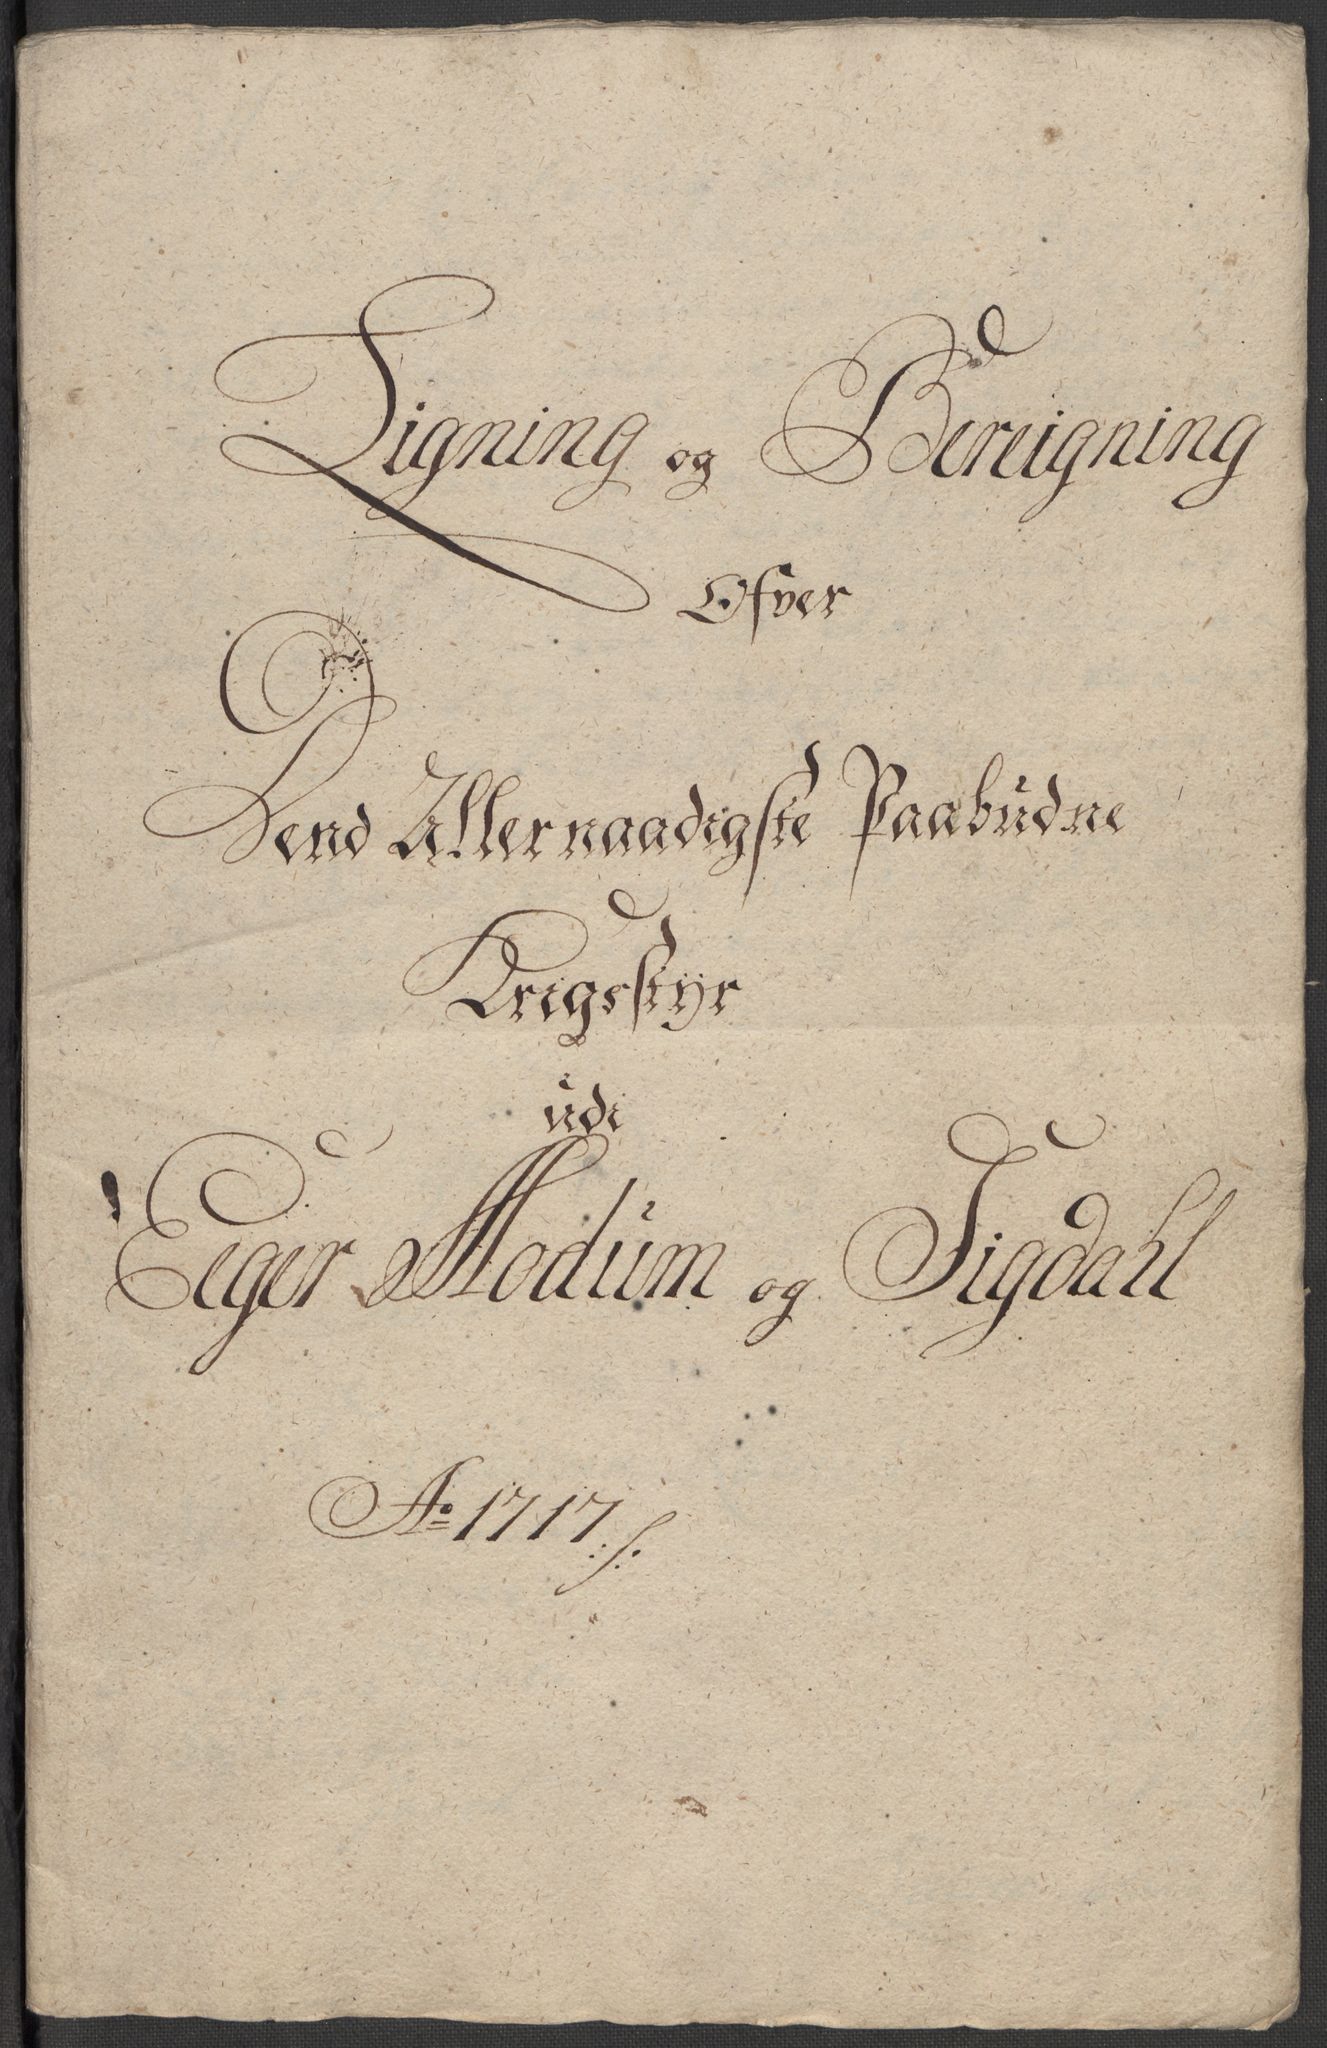 Ligning og Bereigning
Ofver
Dend Allernaadigste Paabudne
Krigsstyr
udi
Eger Modum og Sigdahl
Ao 1717